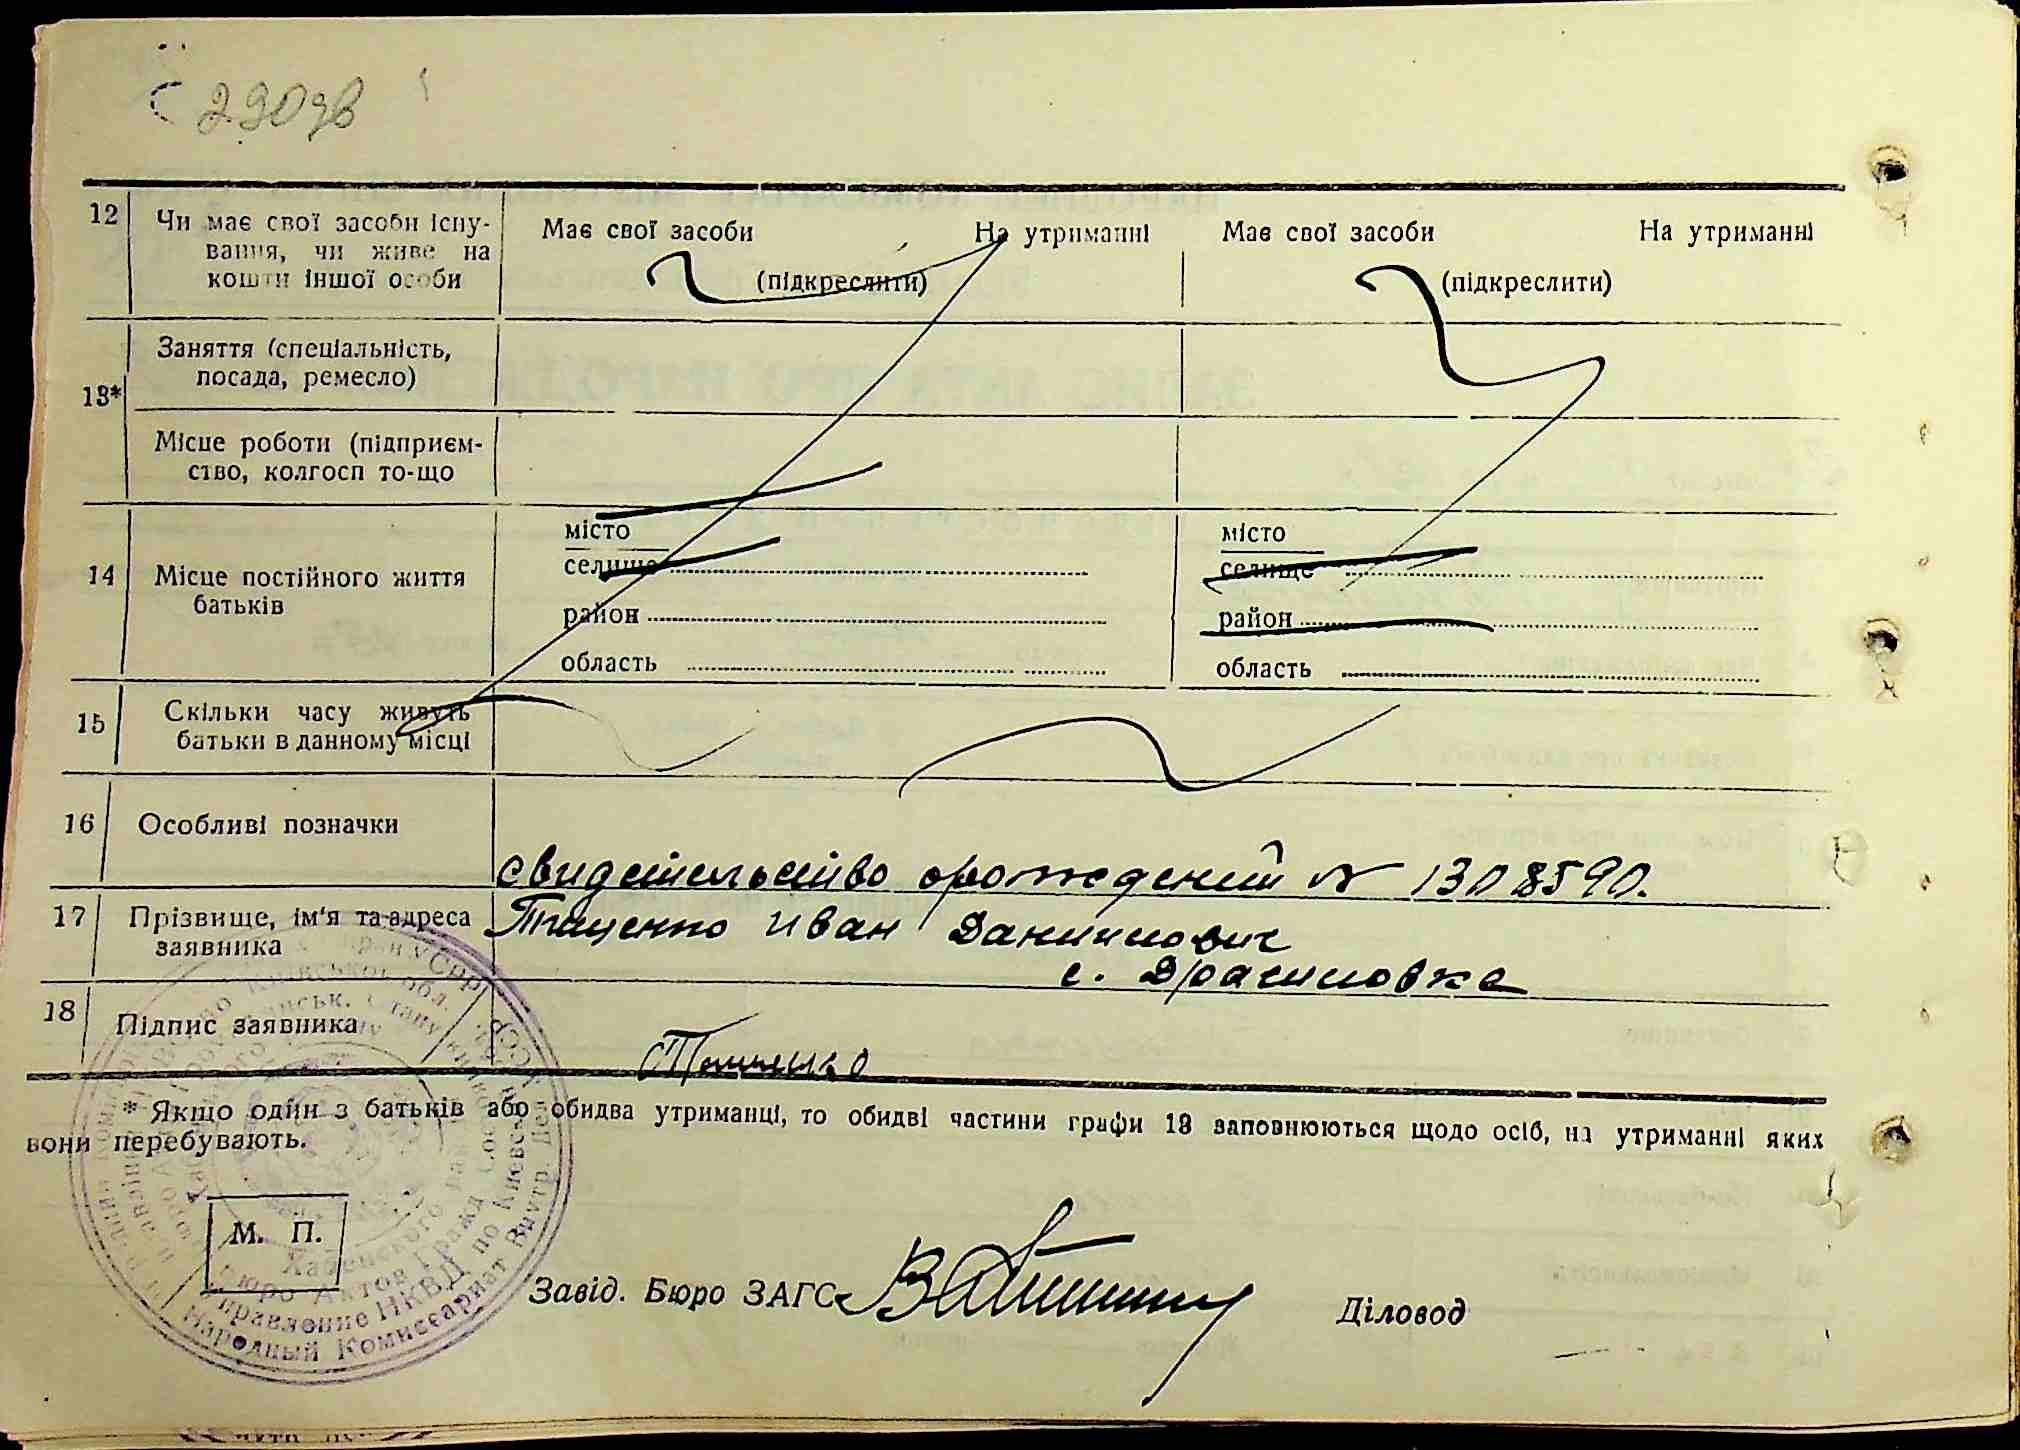 290зв
12 Чи має свої засоби існу-
вання, чи живе на
кошти іншої особи
Має свої засоби На утриманні
(підкреслити)
Має свої засоби На утриманні
(підкреслити)
13*
Заняття (спеціальність,
посада, ремесло)
Місце роботи (підприєм-
ство, колгосп то-що
14 Місце постійного життя
батьків
місто
селище
район
область
місто
селище
район
область
15 Скільки часу живуть
батьки в данному місці
16 Особливі позначки
свидетельство орождений № 1308590.
17 Прізвище, ім'я та адреса
заявника
Тищенко Иван Данилович
с.
18 Підпис заявника
* Якщо один з батьків або обидва утриманці, то обидві частини графи 13 заповнюються щодо осіб, на утриманні яких
вони перебувають.
М. П.
Завід. Бюро ЗАГС
Діловод
Народный Комиссариат Внутр. Дел
Управление НКВД по Киевск
Бюро Актов Гражд. Сост
Хабенского рай